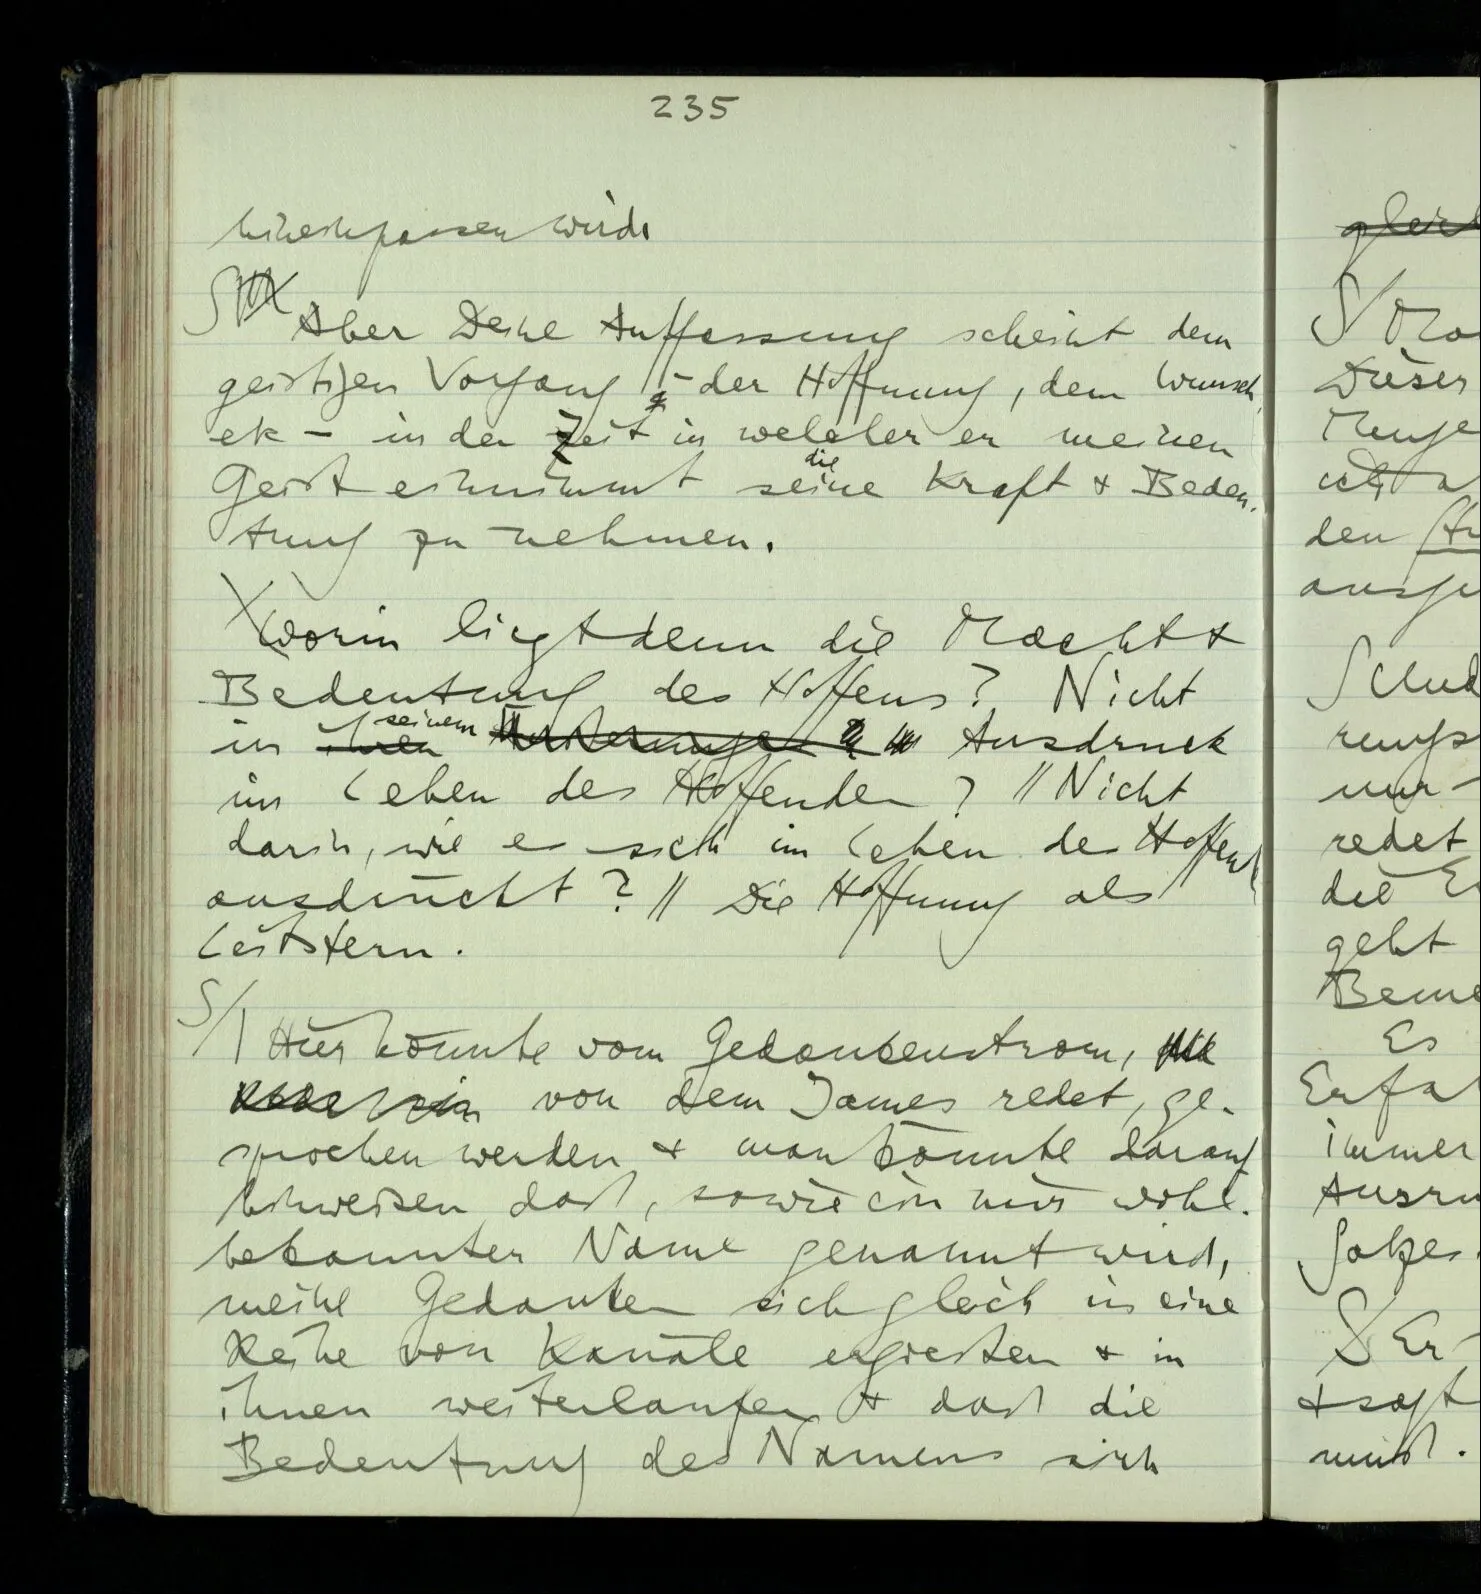 235
hineinpassen wird.
S Aber Deine Auffassung scheint dem
geistigen Vorgang – der Hoffnung, dem Wunsch,
etc – in der Zeit in welcher er meinen
Geist einnimmt seine die Kraft & Bedeu-
tung zu nehmen.
Worin liegt denn die Macht &
Bedeutung des Hoffens? Nicht
in ihren seinem Ausdruck
im Leben des Hoffenden? // Nicht
darin, wie es sich im Leben des Hoffend
ausdrückt? // Die Hoffnung als
Leitstern.
S/ Hier könnte vom Gedankenstrom,
von dem James redet, ge-
sprochen werden & man könnte darauf
hinweisen das, sowie ein mir wohl-
bekannter Name genannt wird,
meine Gedanken sich gleich in eine
Reihe von Kanäle ergiessen & in
ihnen weiterlaufen & das die
Bedeutung des Namens sich
S/
Dieser
Menge
den
Es
immer
redet
die
geht
S Er-
& sagt